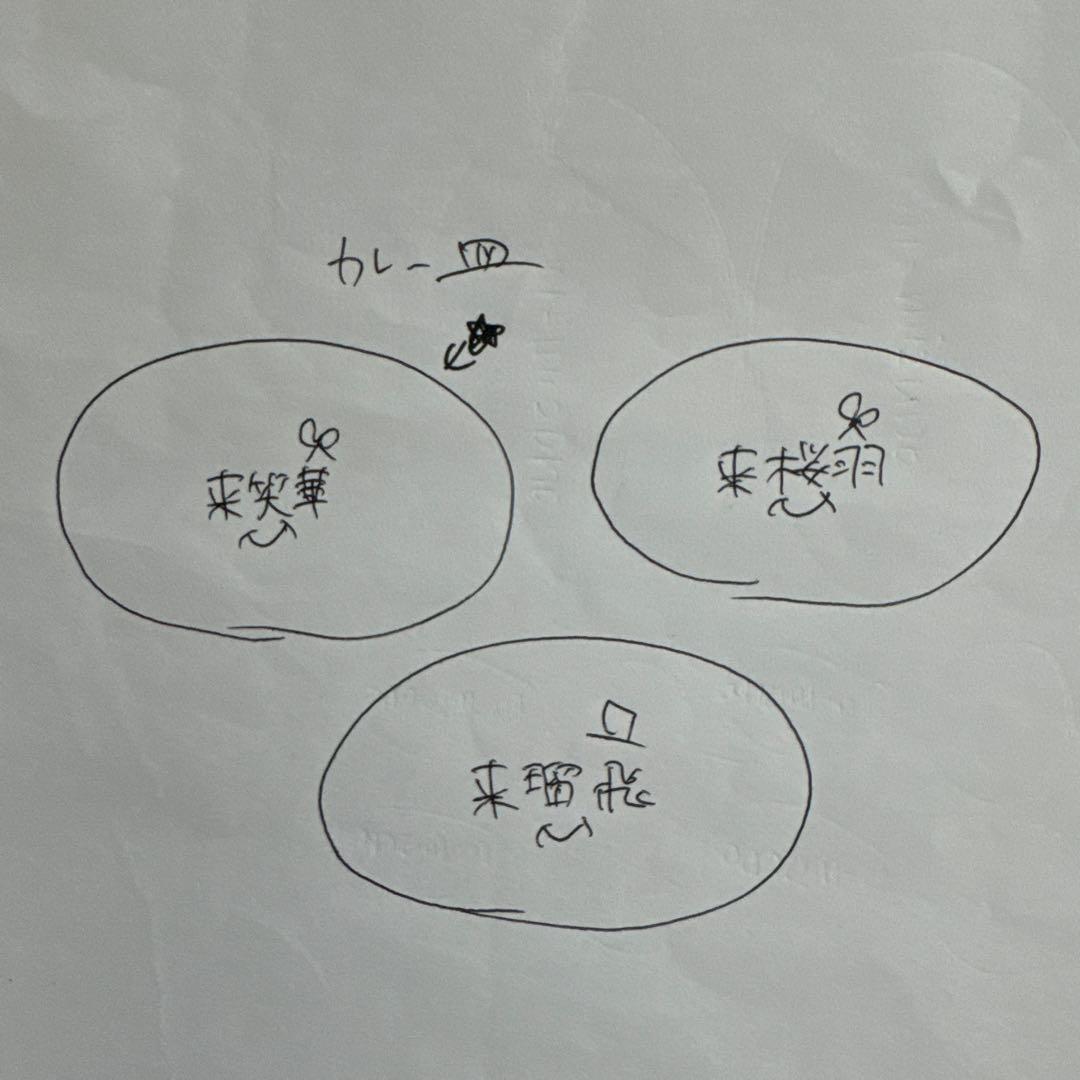 カレー皿
来笑華
来桜羽
来瑠飛